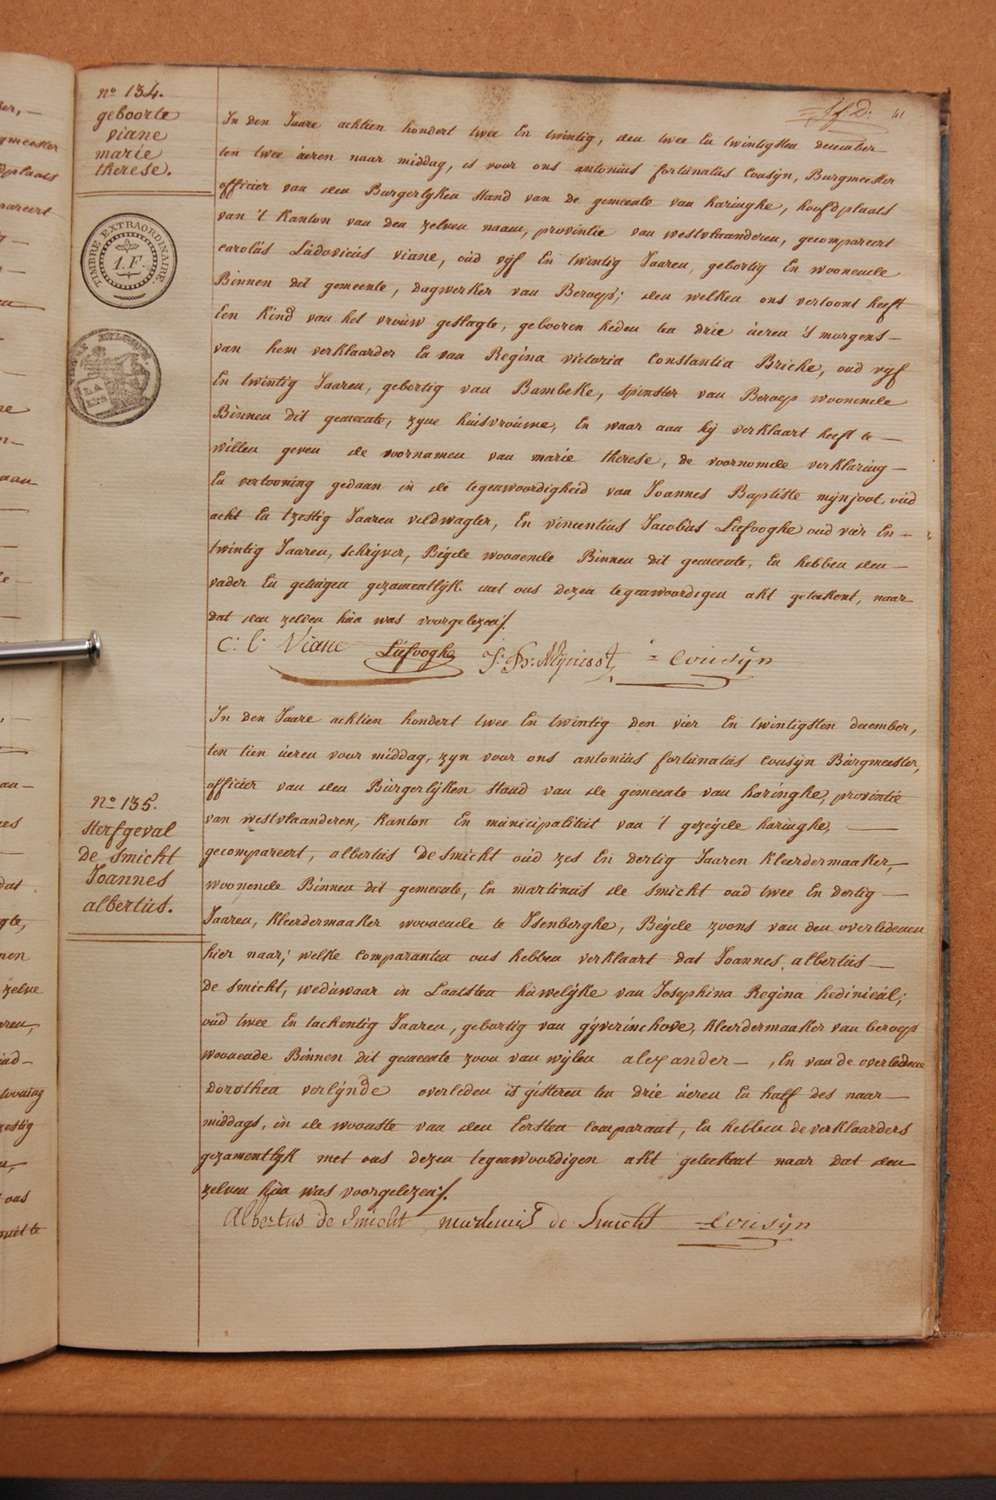 41
nº 134.
geboorte
viane
marie
therese.
TIMBRE EXTRAORDINAIRE.
1.F.
In den Jaare achtien hondert twee En twintig, den twee En twintigsten december
ten twee ùeren naar middag, is voor ons antonius fortunatus Cousÿn, Burgmeester
officier van den Burgerlÿken Stand van de gemeente van haringhe, hoofdplaats
van 't Kanton van den zelven naam, provintie van westvlaanderen, gecompareert
carolùs Lùdovicùs viane, oùd vÿf En twintig Jaaren, gebortig En woonende
Binnen dit gemeente, dagwerker van Beroep; den welken ons vertoont heeft
Een Kind van het vroùw geslagte, gebooren heden ten drie ùeren 's morgens—
van hem verklaarder En van Regina victoria Constantia Briche, oud vÿf
En twintig Jaaren, gebortig van Bambeke, spinster van Beroep woonende
Binnen dit gemeente, zÿne huisvroùwe, En waar aan hÿ verklaart heeft te—
willen geven de voornamen van marie therese, de voornomde verklaring—
En vertooning gedaan in de tegenwoordigheid van Joannes Baptiste mÿnjoot, oùd
acht En tzestig Jaaren veldwagter, En vincentiùs Jacobùs Lùfooghe oud vier En—
twintig Jaaren, schrÿver, Béÿde woonende Binnen dit gemeente, En hebben den—
vader En getùigen gezamentlÿk met ons dezen tegenwoordigen akt geteekent, naar
dat den zelven hùn was voorgelezen/.
C: l: Viane Lùfooghe J: B: Mÿnjoot = Cousÿn
In den Jaare achtien hondert twee En twintig den vier En twintigsten december,
ten tien ùeren voor middag, zÿn voor ons antoniùs fortùnatùs Cousÿn Bùrgmeester,
officier van den Bùrgerlÿken Stand van de gemeente van haringhe, provintie
van westvlaanderen, Kanton En mùnicipaliteit van 't gezéÿde haringhe, —
gecompareert, albertùs De Smicht oùd zes En dertig Jaaren Kleerdermaaker,
woonende Binnen dit gemeente, En martinùs de Smicht oud twee En dertig—
Jaaren, Kleerdermaaker woonende te Isenberghe, Béÿde zoons van den overledenen
hier naar; welke comparanten ons hebben verklaart dat Joannes albertùs—
De Smicht, wedùwaar in Laatsten hùwelÿke van Josephina Regina
oùd twee En tachentig Jaaren, gebortig van gÿverinchove, Kleerdermaaker van beroep
woonende Binnen dit gemeente zoon van wÿlen alexander—, En van de overledene
Dorothea verlÿnde overleden is gisteren ten drie ùeren En half des naar—
middags, in de woonste van den Eersten Comparant, En hebben de verklaarders
gezamentlÿk met ons dezen tegenwoordigen akt geteekent naar dat den
zelven hùn was voorgelezen/.
nº 135.
sterfgeval
de Smicht
Joannes
albertùs.
Albertus de Smicht martinus de Smicht = Cousÿn